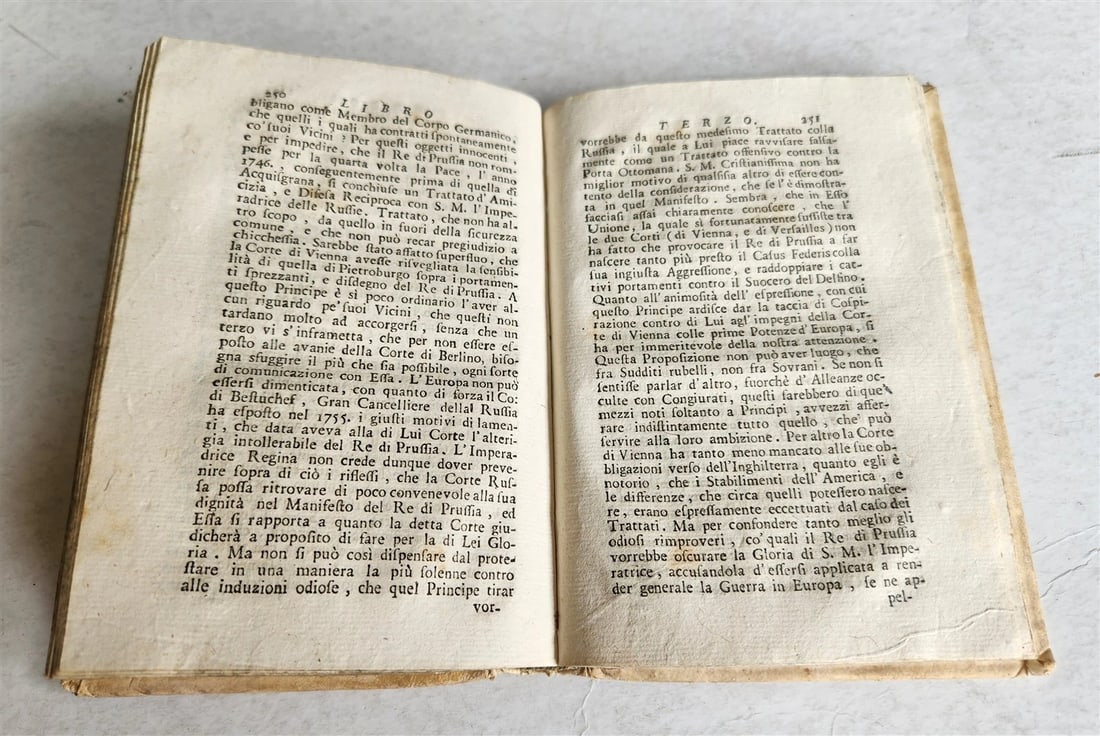 250 LIBRO
bligano come Membro del Corpo Germanico,
che quelli i quali ha contratti ſpontaneamente
co' ſuoi Vicini? Per queſti oggetti innocenti,
e per impedire, che il Re di Pruſſia non rom-
peſſe per la quarta volta la Pace, l' anno
1746. , conſeguentemente prima di quella di
Acquiſgrana, ſi conchiuſe un Trattato d' Ami-
cizia, e Difeſa Reciproca con S. M. l' Impe-
radrice delle Ruſſie. Trattato, che non ha al-
tro ſcopo, da quello in fuori della ſicurezza
comune, e che non può recar pregiudizio a
chiccheſſia. Sarebbe ſtato affatto ſuperfluo, che
la Corte di Vienna aveſſe riſvegliata la ſenſibi-
lità di quella di Pietroburgo ſopra i portamen-
ti ſprezzanti, e diſdegno del Re di Pruſſia. A
queſto Principe è sì poco ordinario l'aver al-
cun riguardo pe' ſuoi Vicini, che queſti non
tardano molto ad accorgerſi, ſenza che un
terzo vi s' inframetta, che per non eſſere eſ-
poſto alle avanie della Corte di Berlino, biſo-
gna sfuggire il più che ſia poſſibile, ogni ſorte
di comunicazione con Eſſa. L' Europa non può
eſſerſi dimenticata, con quanto di forza il Co:
di Beſtuchef, Gran Cancelliere della Ruſſia
ha eſpoſto nel 1755. i giuſti motivi di lamen-
ti, che data aveva alla di Lui Corte l' alteri-
gia intollerabile del Re di Pruſſia. L' Impera-
drice Regina non crede dunque dover preve-
nire ſopra di ciò i rifleſſi, che la Corte Ruſ-
ſa poſſa ritrovare di poco convenevole alla ſua
dignità nel Manifeſto del Re di Pruſſia, ed
Eſſa ſi rapporta a quanto la detta Corte giu-
dicherà a propoſito di fare per la di Lei Glo-
ria. Ma non ſi può così diſpenſare dal prote-
ſtare in una maniera la più ſolenne contro
alle induzioni odioſe, che quel Principe tirar
vor-
TERZO. 251
vorrebbe da queſto medeſimo Trattato colla
Ruſſia, il quale a Lui piace ravviſare falſa-
mente come un Trattato offenſivo contro la
Porta Ottomana. S. M. Criſtianiſſima non ha
miglior motivo di qualſiſia altro di eſſere con-
tento della conſiderazione, che ſe l' è dimoſtra-
ta in quel Manifeſto. Sembra, che in Eſſo
facciaſi aſſai chiaramente conoſcere, che l'
Unione, la quale sì fortunatamente ſuſſiſte tra
le due Corti (di Vienna, e di Verſailles) non
ha fatto che provocare il Re di Pruſſia a far
naſcere tanto più preſto il Caſus Federis colla
ſua ingiuſta Aggreſſione, e raddoppiare i cat-
tivi portamenti contro il Suocero del Delfino.
Quanto all' animoſità dell' eſpreſſione, con cui
queſto Principe ardiſce dar la taccia di Coſpi-
razione contro di Lui agl' impegni della Cor-
te di Vienna colle prime Potenze d' Europa, ſi
ha per immeritevole della noſtra attenzione.
Queſta Propoſizione non può aver luogo, che
fra Sudditi rubelli, non fra Sovrani. Se non ſi
ſentiſſe parlar d' altro, fuorchè d' Alleanze oc-
culte con Congiurati, queſti ſarebbero di que'
mezzi noti ſoltanto a Principi, avvezzi affer-
rare indiſtintamente tutto quello, che può
ſervire alla loro ambizione. Per altro la Corte
di Vienna ha tanto meno mancato alle ſue ob-
bligazioni verſo dell' Inghilterra, quanto egli è
notorio, che i Stabilimenti dell' America, e
le differenze, che circa quelli poteſſero naſce-
re, erano eſpreſſamente eccettuati dal caſo dei
Trattati. Ma per confondere tanto meglio gli
odioſi rimproveri, co' quali il Re di Pruſſia
vorrebbe oſcurare la Gloria di S. M. l' Impe-
ratrice, accuſandola d' eſſerſi applicata a ren-
der generale la Guerra in Europa, ſe ne ap-
pel-